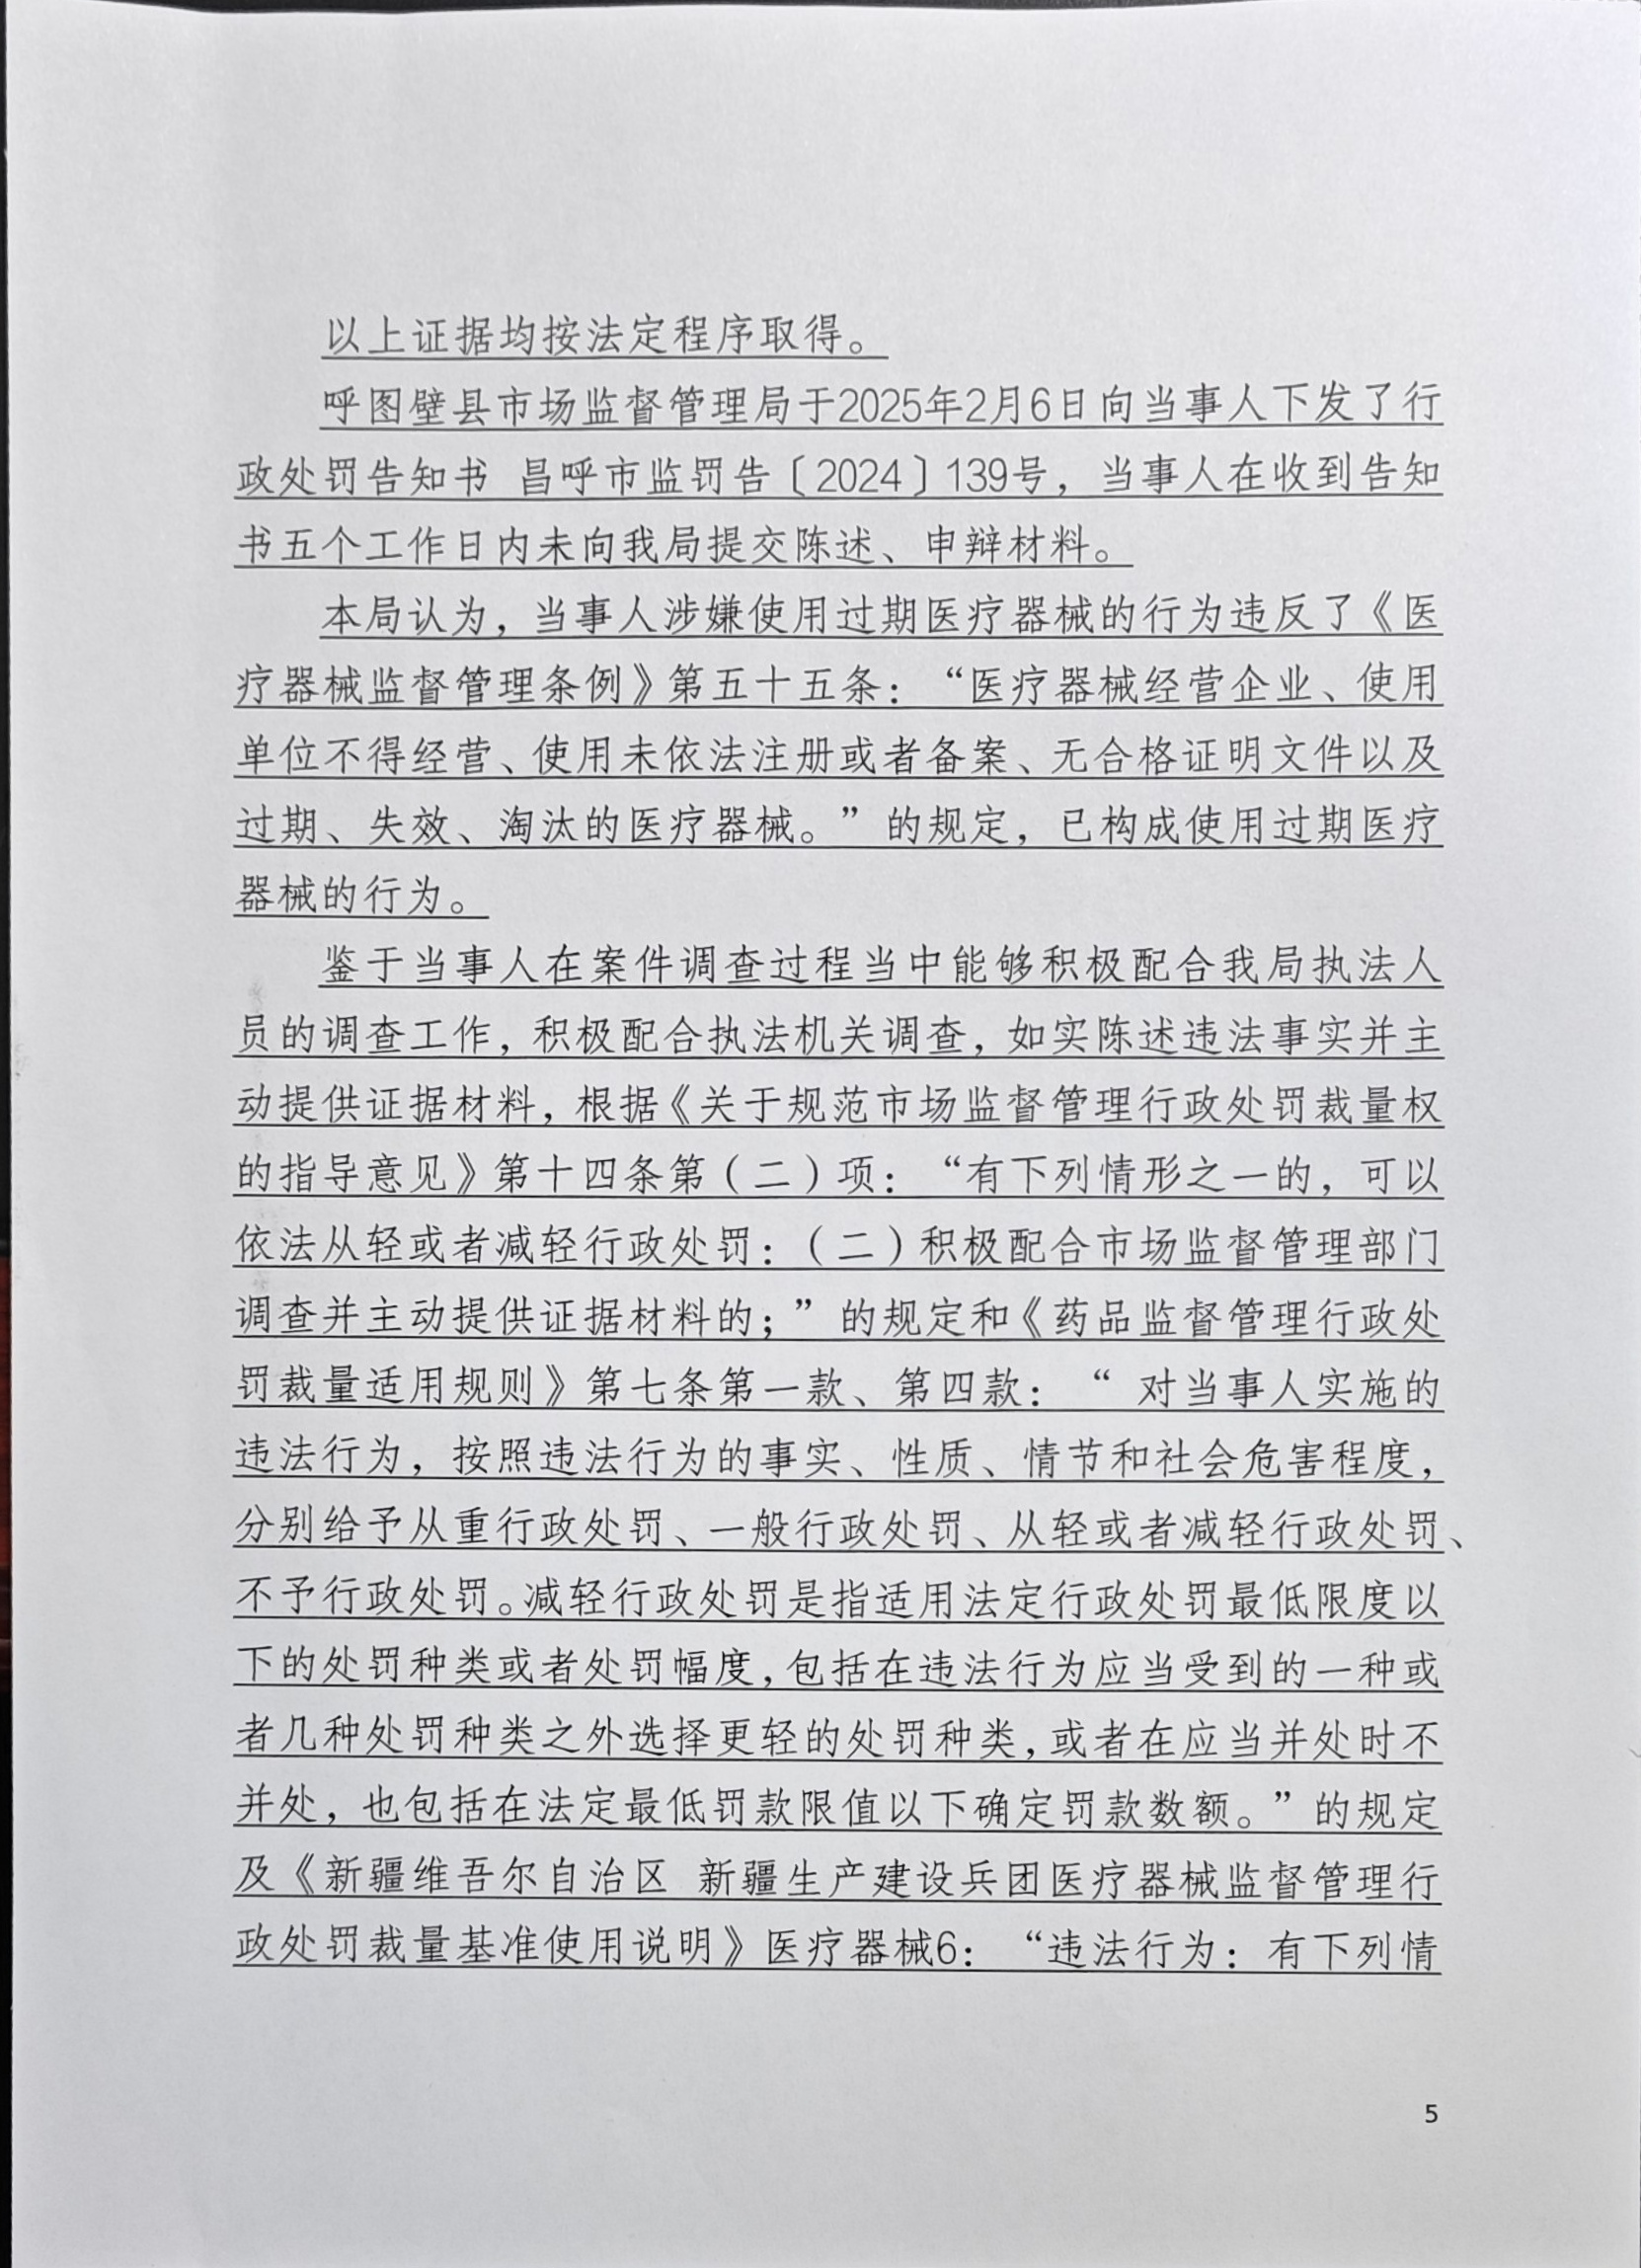 以上证据均按法定程序取得。
呼图壁县市场监督管理局于2025年2月6日向当事人下发了行
政处罚告知书 昌呼市监罚告〔2024〕139号，当事人在收到告知
书五个工作日内未向我局提交陈述、申辩材料。
本局认为，当事人涉嫌使用过期医疗器械的行为违反了《医
疗器械监督管理条例》第五十五条：“医疗器械经营企业、使用
单位不得经营、使用未依法注册或者备案、无合格证明文件以及
过期、失效、淘汰的医疗器械。”的规定，已构成使用过期医疗
器械的行为。
鉴于当事人在案件调查过程当中能够积极配合我局执法人
员的调查工作，积极配合执法机关调查，如实陈述违法事实并主
动提供证据材料，根据《关于规范市场监督管理行政处罚裁量权
的指导意见》第十四条第（二）项：“有下列情形之一的，可以
依法从轻或者减轻行政处罚：（二）积极配合市场监督管理部门
调查并主动提供证据材料的；”的规定和《药品监督管理行政处
罚裁量适用规则》第七条第一款、第四款：“ 对当事人实施的
违法行为，按照违法行为的事实、性质、情节和社会危害程度，
分别给予从重行政处罚、一般行政处罚、从轻或者减轻行政处罚、
不予行政处罚。减轻行政处罚是指适用法定行政处罚最低限度以
下的处罚种类或者处罚幅度，包括在违法行为应当受到的一种或
者几种处罚种类之外选择更轻的处罚种类，或者在应当并处时不
并处，也包括在法定最低罚款限值以下确定罚款数额。”的规定
及《新疆维吾尔自治区 新疆生产建设兵团医疗器械监督管理行
政处罚裁量基准使用说明》医疗器械6：“违法行为：有下列情
5